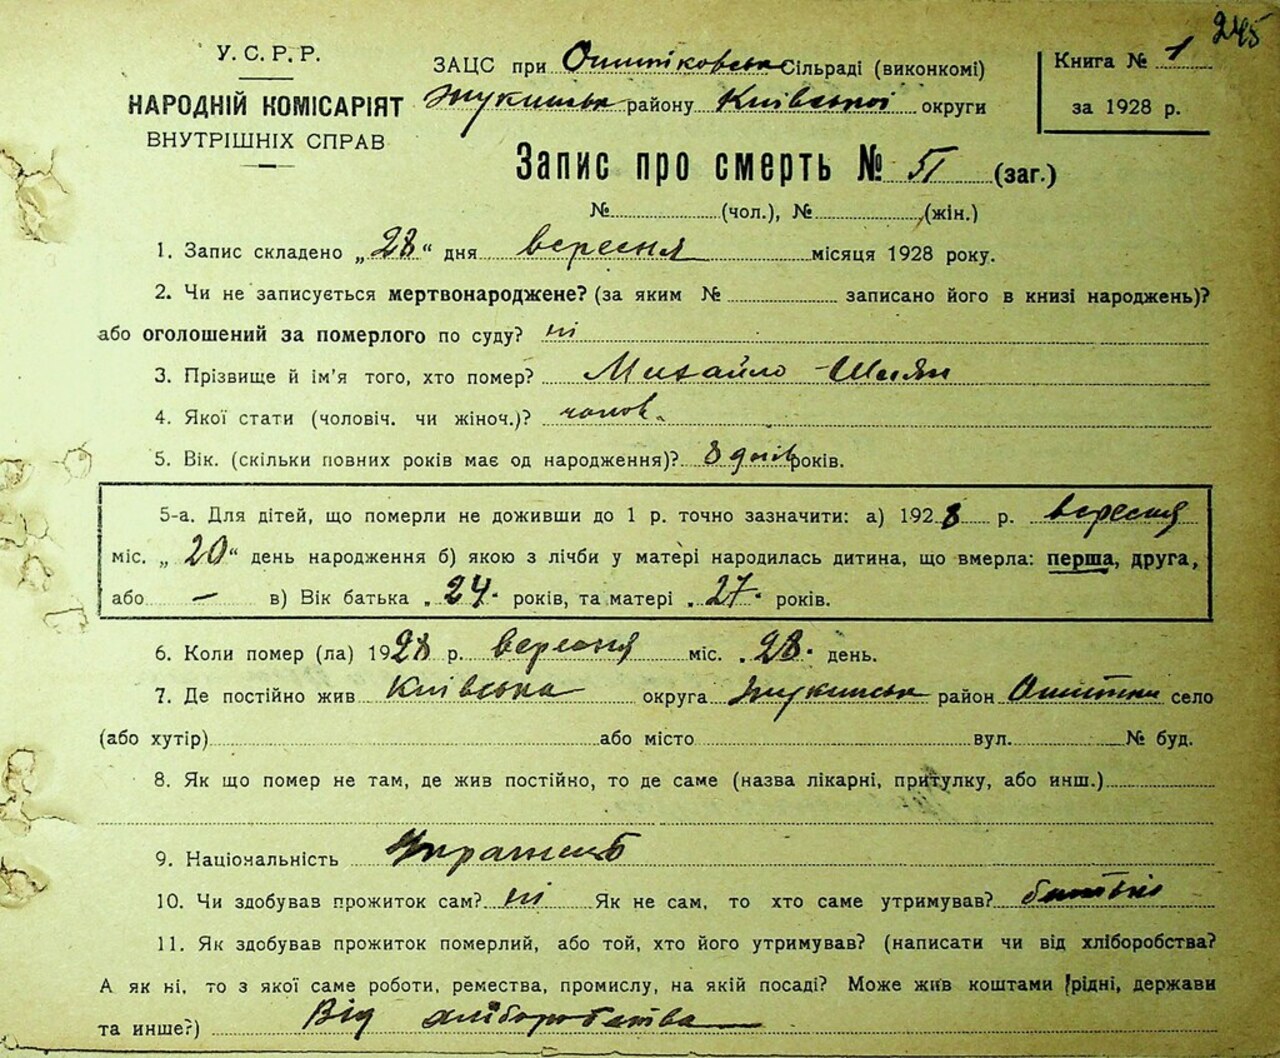 245
У. С. Р. Р.
НАРОДНІЙ КОМІСАРІЯТ
ВНУТРІШНІХ СПРАВ
ЗАЦС при Ошитковськ Сільраді (виконкомі)
Жукинськ району Київської округи
Книга № 1
за 1928 р.
Запис про смерть № 51 (заг.)
№ (чол.), № (жін.)
1. Запис складено „28“ дня вересня місяця 1928 року.
2. Чи не записується мертвонароджене? (за яким № записано його в книзі народжень)?
або оголошений за померлого по суду? ні
3. Прізвище й ім'я того, хто помер? Михайло
4. Якої стати (чоловіч. чи жіноч.)? чолов.
5. Вік. (скільки повних років має од народження)? 8 днів років.
5-а. Для дітей, що померли не доживши до 1 р. точно зазначити: а) 1928 р. вересня
міс. „20“ день народження б) якою з лічби у матері народилась дитина, що вмерла: перша, друга,
або — в) Вік батька 24 років, та матері 27 років.
6. Коли помер (ла) 1928 р. вересня міс. 28 день.
7. Де постійно жив Київська округа Жукинськ район Ошитки село
(або хутір) або місто вул. № буд.
8. Як що помер не там, де жив постійно, то де саме (назва лікарні, притулку, або инш.)
9. Національність
10. Чи здобував прожиток сам? ні Як не сам, то хто саме утримував? батько
11. Як здобував прожиток померлий, або той, хто його утримував? (написати чи від хліборобства?
А як ні, то з якої саме роботи, ремества, промислу, на якій посаді? Може жив коштами рідні, держави
та инше?) Від хліборобства